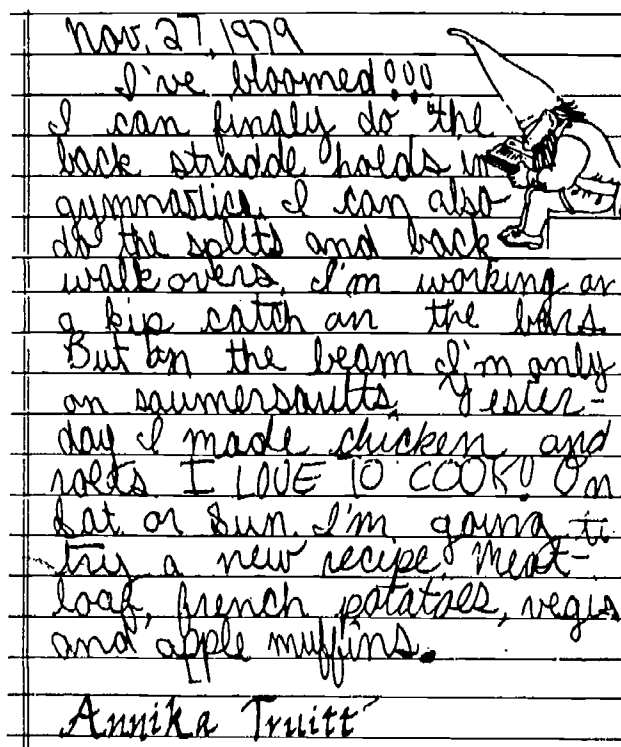 Nov. 27, 1979
I've bloomed!!!
I can finaly do the
back stradde holds in
gymnastics. I can also
do the splits and back
walk overs. I'm working on
a kip catch on the bars.
But on the beam I'm only
on saumersaults. Yester-
day I made chicken and
I LOVE TO COOK! On
Sat or Sun. I'm going to
try a new recipe. Meat-
loaf, french patatoes, vegis
and apple muffins.
Annika Truitt